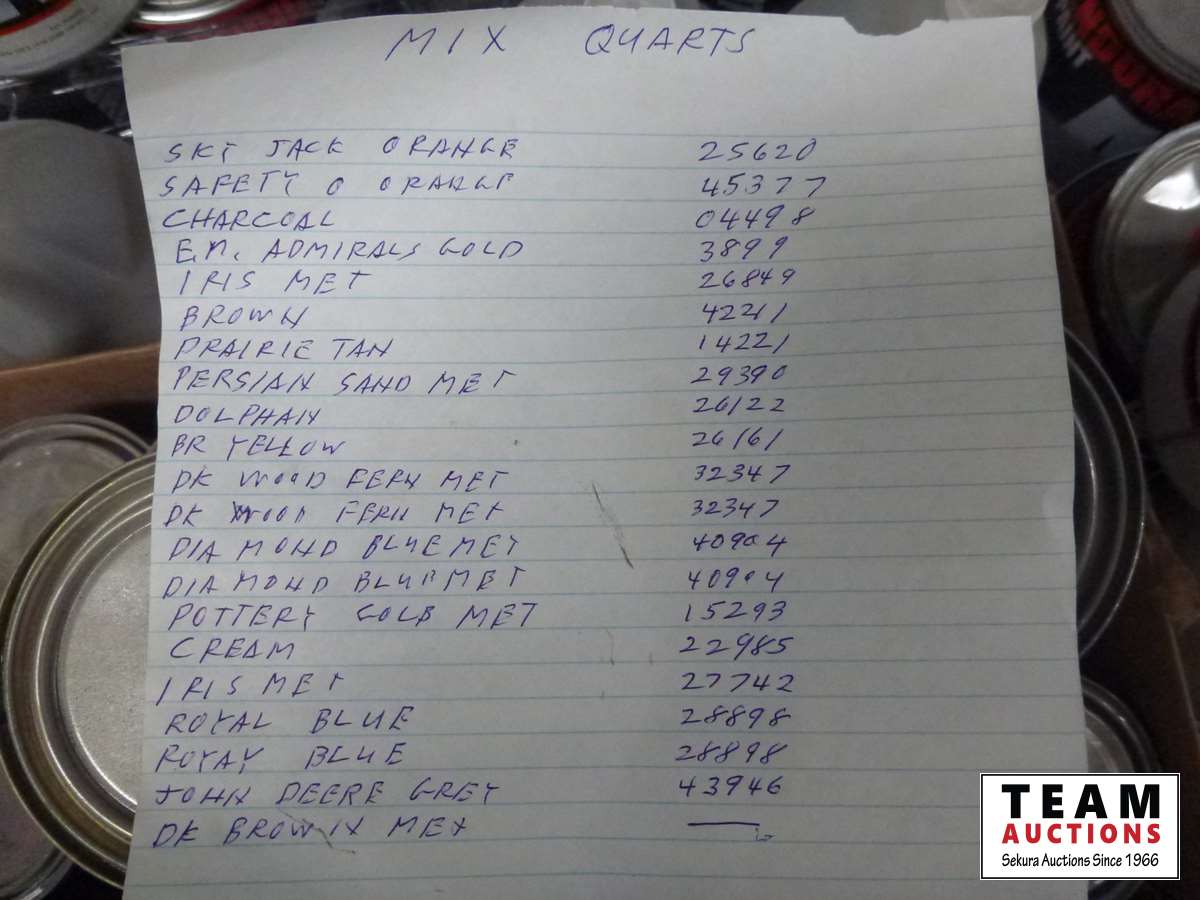 MIX QUARTS
SKY JACK ORANGE 25620
SAFETY O ORANGE 45377
CHARCOAL 04498
E.M. ADMIRALS GOLD 3899
IRIS MET 26849
BROWN 42211
PRAIRIE TAN 14221
PERSIAN SAND MET 29390
DOLPHAN 26122
BR YELLOW 26161
DK WOOD FERN MET 32347
DK WOOD FERN MET 32347
DIAMOND BLUE MET 40904
DIAMOND BLUE MET 40904
POTTERY GOLB MET 15293
CREAM 22985
IRIS MET 27742
ROYAL BLUE 28898
ROYAY BLUE 28898
JOHN DEERE GREY 43946
DK BROWN MET
TEAM
AUCTIONS
Sekura Auctions Since 1966